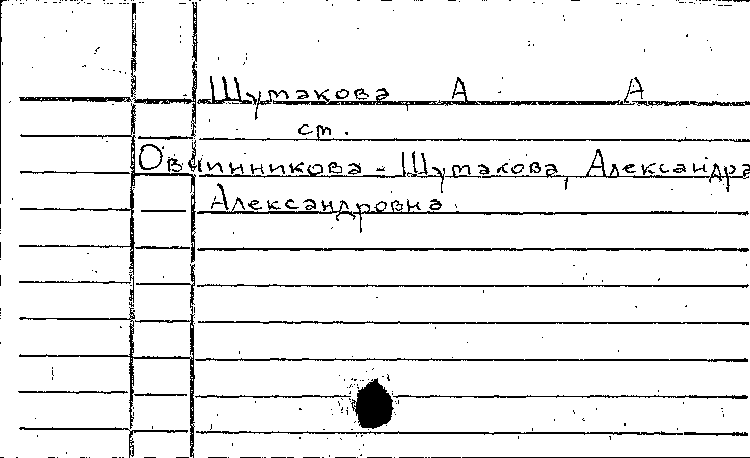 Шутакова А А
ст.
Овчинникова-Шутакова, Александра
Александровна.